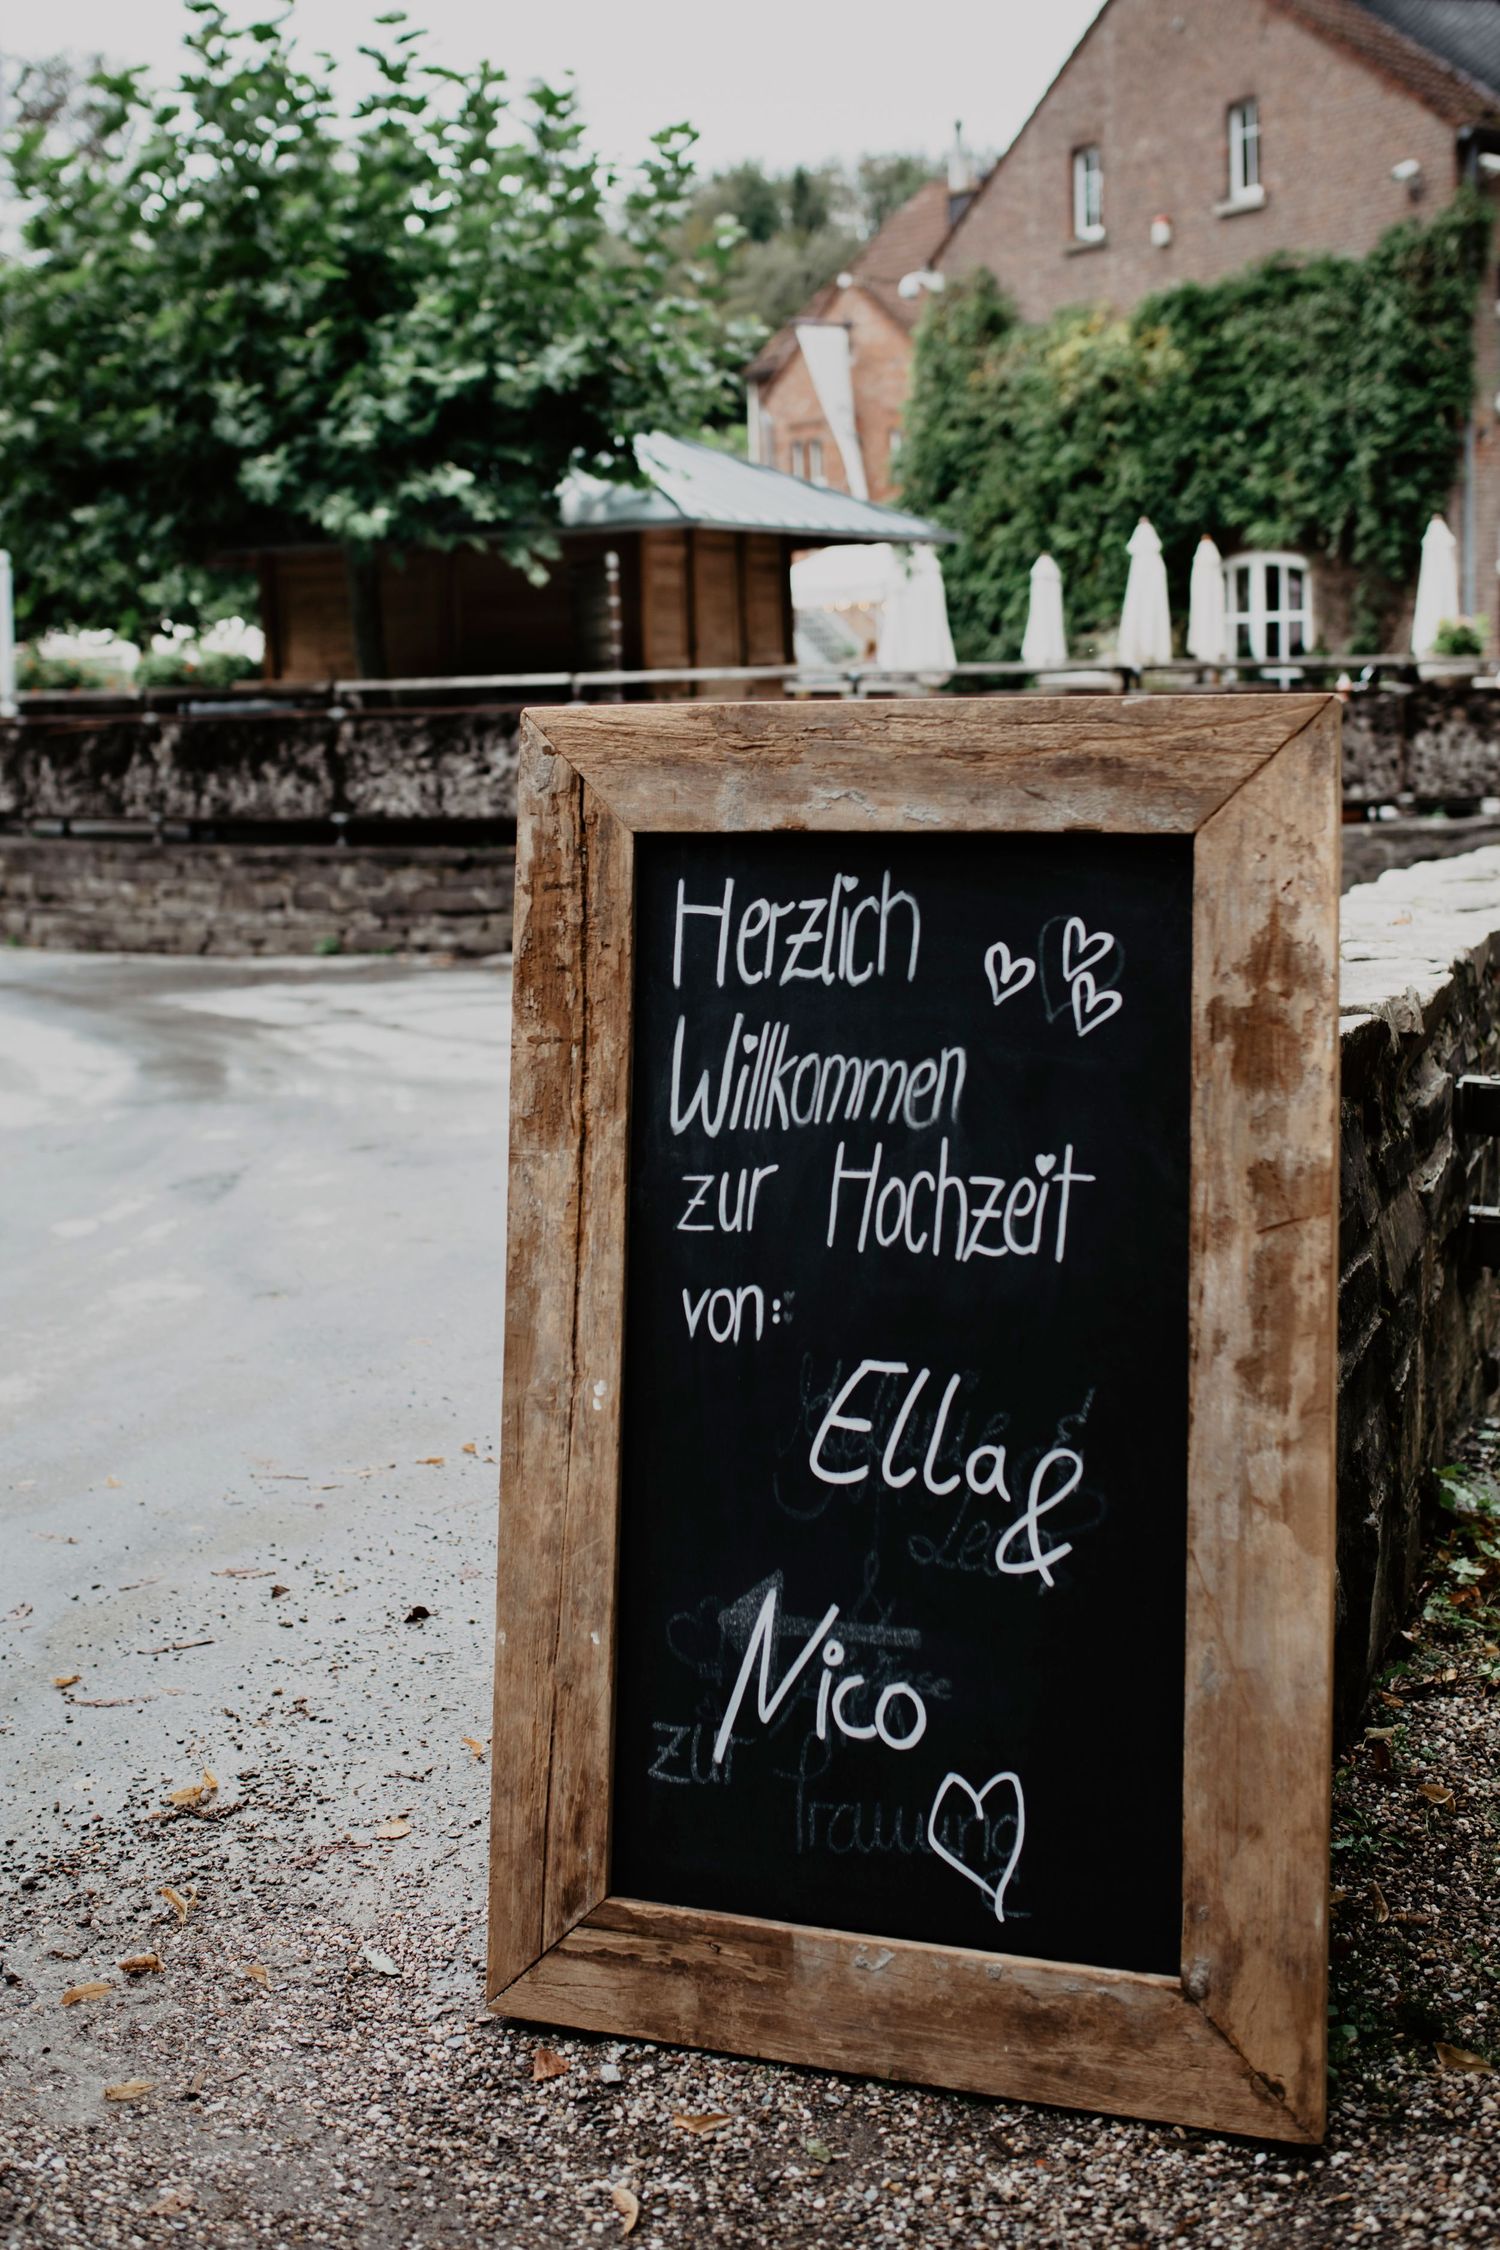 Herzlich
Willkommen
zur Hochzeit
von:
Ella &
Nico
zur
Trauung